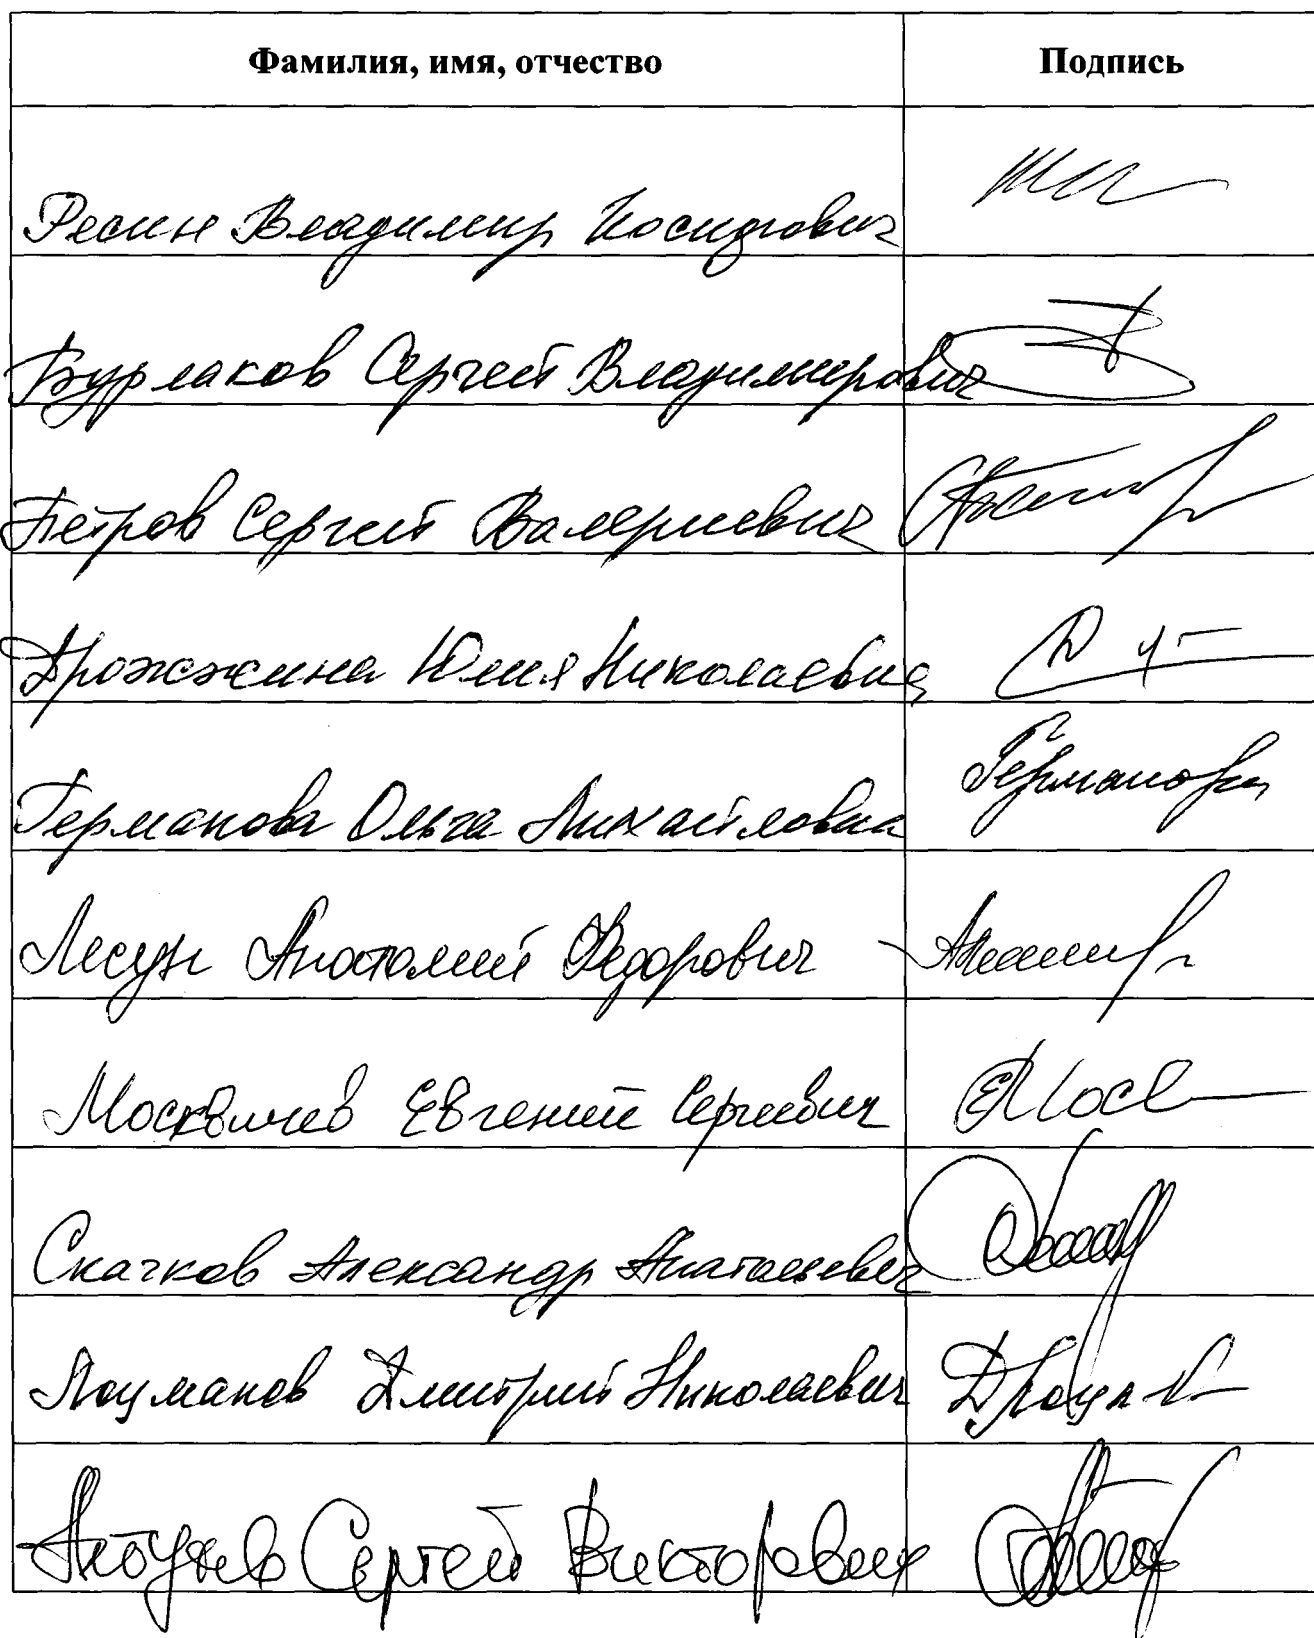 Фамилия, имя, отчество Подпись
Ресин Владимир Иосифович
Бурлаков Сергей Владимирович
Петров Сергей Валериевич
Дрожжина Юлия Николаевна
Германова Ольга Михайловна Германова
Лесун Анатолий Федорович
Москвичев Евгений Сергеевич
Скачков Александр Анатольевич
Лоцманов Дмитрий Николаевич
Сергей Викторович